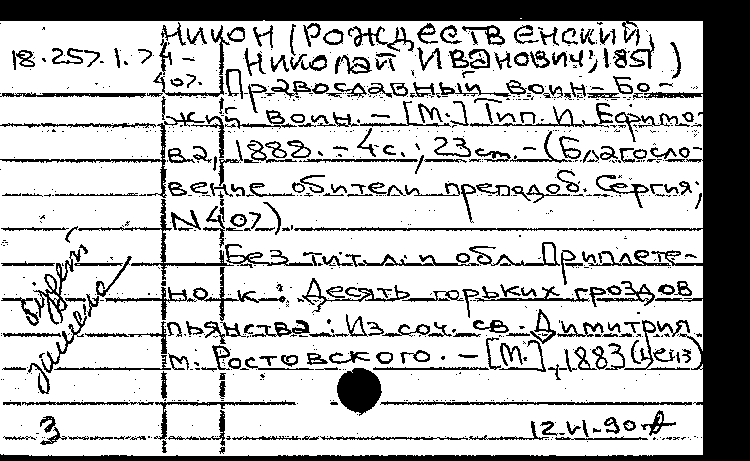 Никон (Рождественский,
18.257.1.74- Николай Иванович; 1851 )
407. Православный воин - Бо-
жий воин. - [М.] Тип. И. Ефимо-
ва, 1888. - 4с.; 23см. - (Благосло-
вение обители преподоб. Сергия;
N407).
Без тит. л. и обл. Приплете-
но к: Десять горьких гроздов
пьянства: Из соч. св. Димитрия
м. Ростовского. - [М.], 1883 (ценз)
будет
заменено
3
12.VI-90